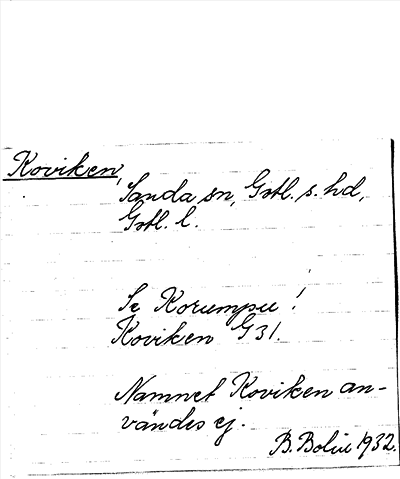 Koviken,
Sanda sn, Gotl. s. hd,
Gotl. l.
Se Korumpu!
Koviken G 31.
Namnet Koviken an-
vändes ej.
B. Bolin 1932.